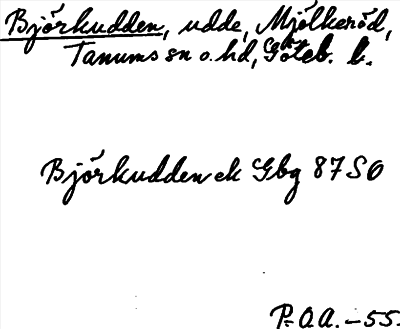 Björkudden, udde, Mjölkeröd,
Tanums sn o. hd, Göteb. l.
Björkudden ek Gbg 87 SO
P. O A. -55.